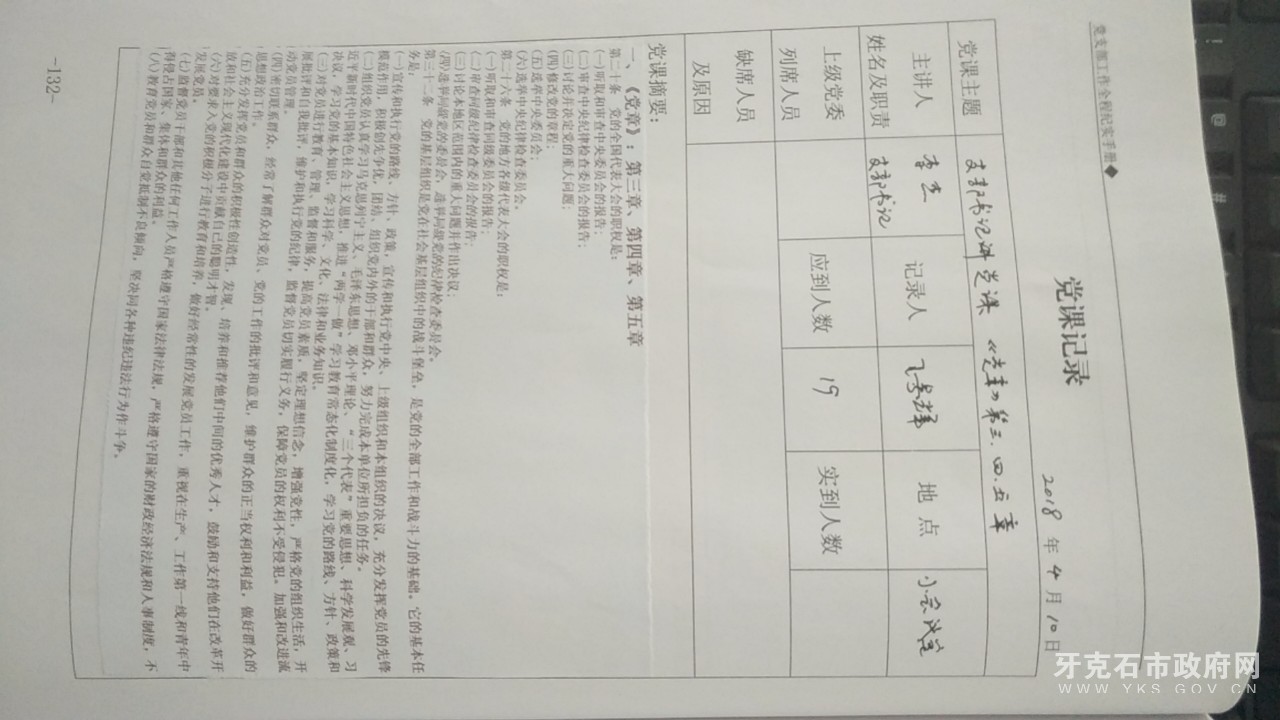 党支部工作全程纪实手册◆
党课记录
2018 年 4 月 10 日
党课主题 支部书记讲党课 《党章》第三、四、五章
主讲人 记录人 地点 小会议室
姓名及职责 支部书记
上级党委 应到人数 19 实到人数
列席人员
缺席人员
及原因
党课摘要：
一、《党章》：第三章、第四章、第五章
第二十条 党的全国代表大会的职权是：
(一) 听取和审查中央委员会的报告；
(二) 审查中央纪律检查委员会的报告；
(三) 讨论并决定党的重大问题；
(四) 修改党的章程；
(五) 选举中央委员会；
(六) 选举中央纪律检查委员会。
第二十六条 党的地方各级代表大会的职权是：
(一) 听取和审查同级委员会的报告；
(二) 审查同级纪律检查委员会的报告；
(三) 讨论本地区范围内的重大问题并作出决议；
(四) 选举同级党的委员会，选举同级党的纪律检查委员会。
第三十二条 党的基层组织是党在社会基层组织中的战斗堡垒，是党的全部工作和战斗力的基础。它的基本任
务是：
(一) 宣传和执行党的路线、方针、政策，宣传和执行党中央、上级组织和本组织的决议，充分发挥党员的先锋
模范作用，积极创先争优，团结、组织党内外的干部和群众，努力完成本单位所担负的任务。
(二) 组织党员认真学习马克思列宁主义、毛泽东思想、邓小平理论、“三个代表”重要思想、科学发展观、习
近平新时代中国特色社会主义思想，推进“两学一做”学习教育常态化制度化，学习党的路线、方针、政策和
决议，学习党的基本知识，学习科学、文化、法律和业务知识。
(三) 对党员进行教育、管理、监督和服务，提高党员素质，坚定理想信念，增强党性，严格党的组织生活，开
展批评和自我批评，维护和执行党的纪律，监督党员切实履行义务，保障党员的权利不受侵犯。加强和改进流
动党员管理。
(四) 密切联系群众，经常了解群众对党员、党的工作的批评和意见，维护群众的正当权利和利益，做好群众的
思想政治工作。
(五) 充分发挥党员和群众的积极性创造性，发现、培养和推荐他们中间的优秀人才，鼓励和支持他们在改革开
放和社会主义现代化建设中贡献自己的聪明才智。
(六) 对要求入党的积极分子进行教育和培养，做好经常性的发展党员工作，重视在生产、工作第一线和青年中
发展党员。
(七) 监督党员干部和其他任何工作人员严格遵守国家法律法规，严格遵守国家的财政经济法规和人事制度，不
得侵占国家、集体和群众的利益。
(八) 教育党员和群众自觉抵制不良倾向，坚决同各种违纪违法行为作斗争。
-132-
牙克石市政府网
WWW.YKS.GOV.CN